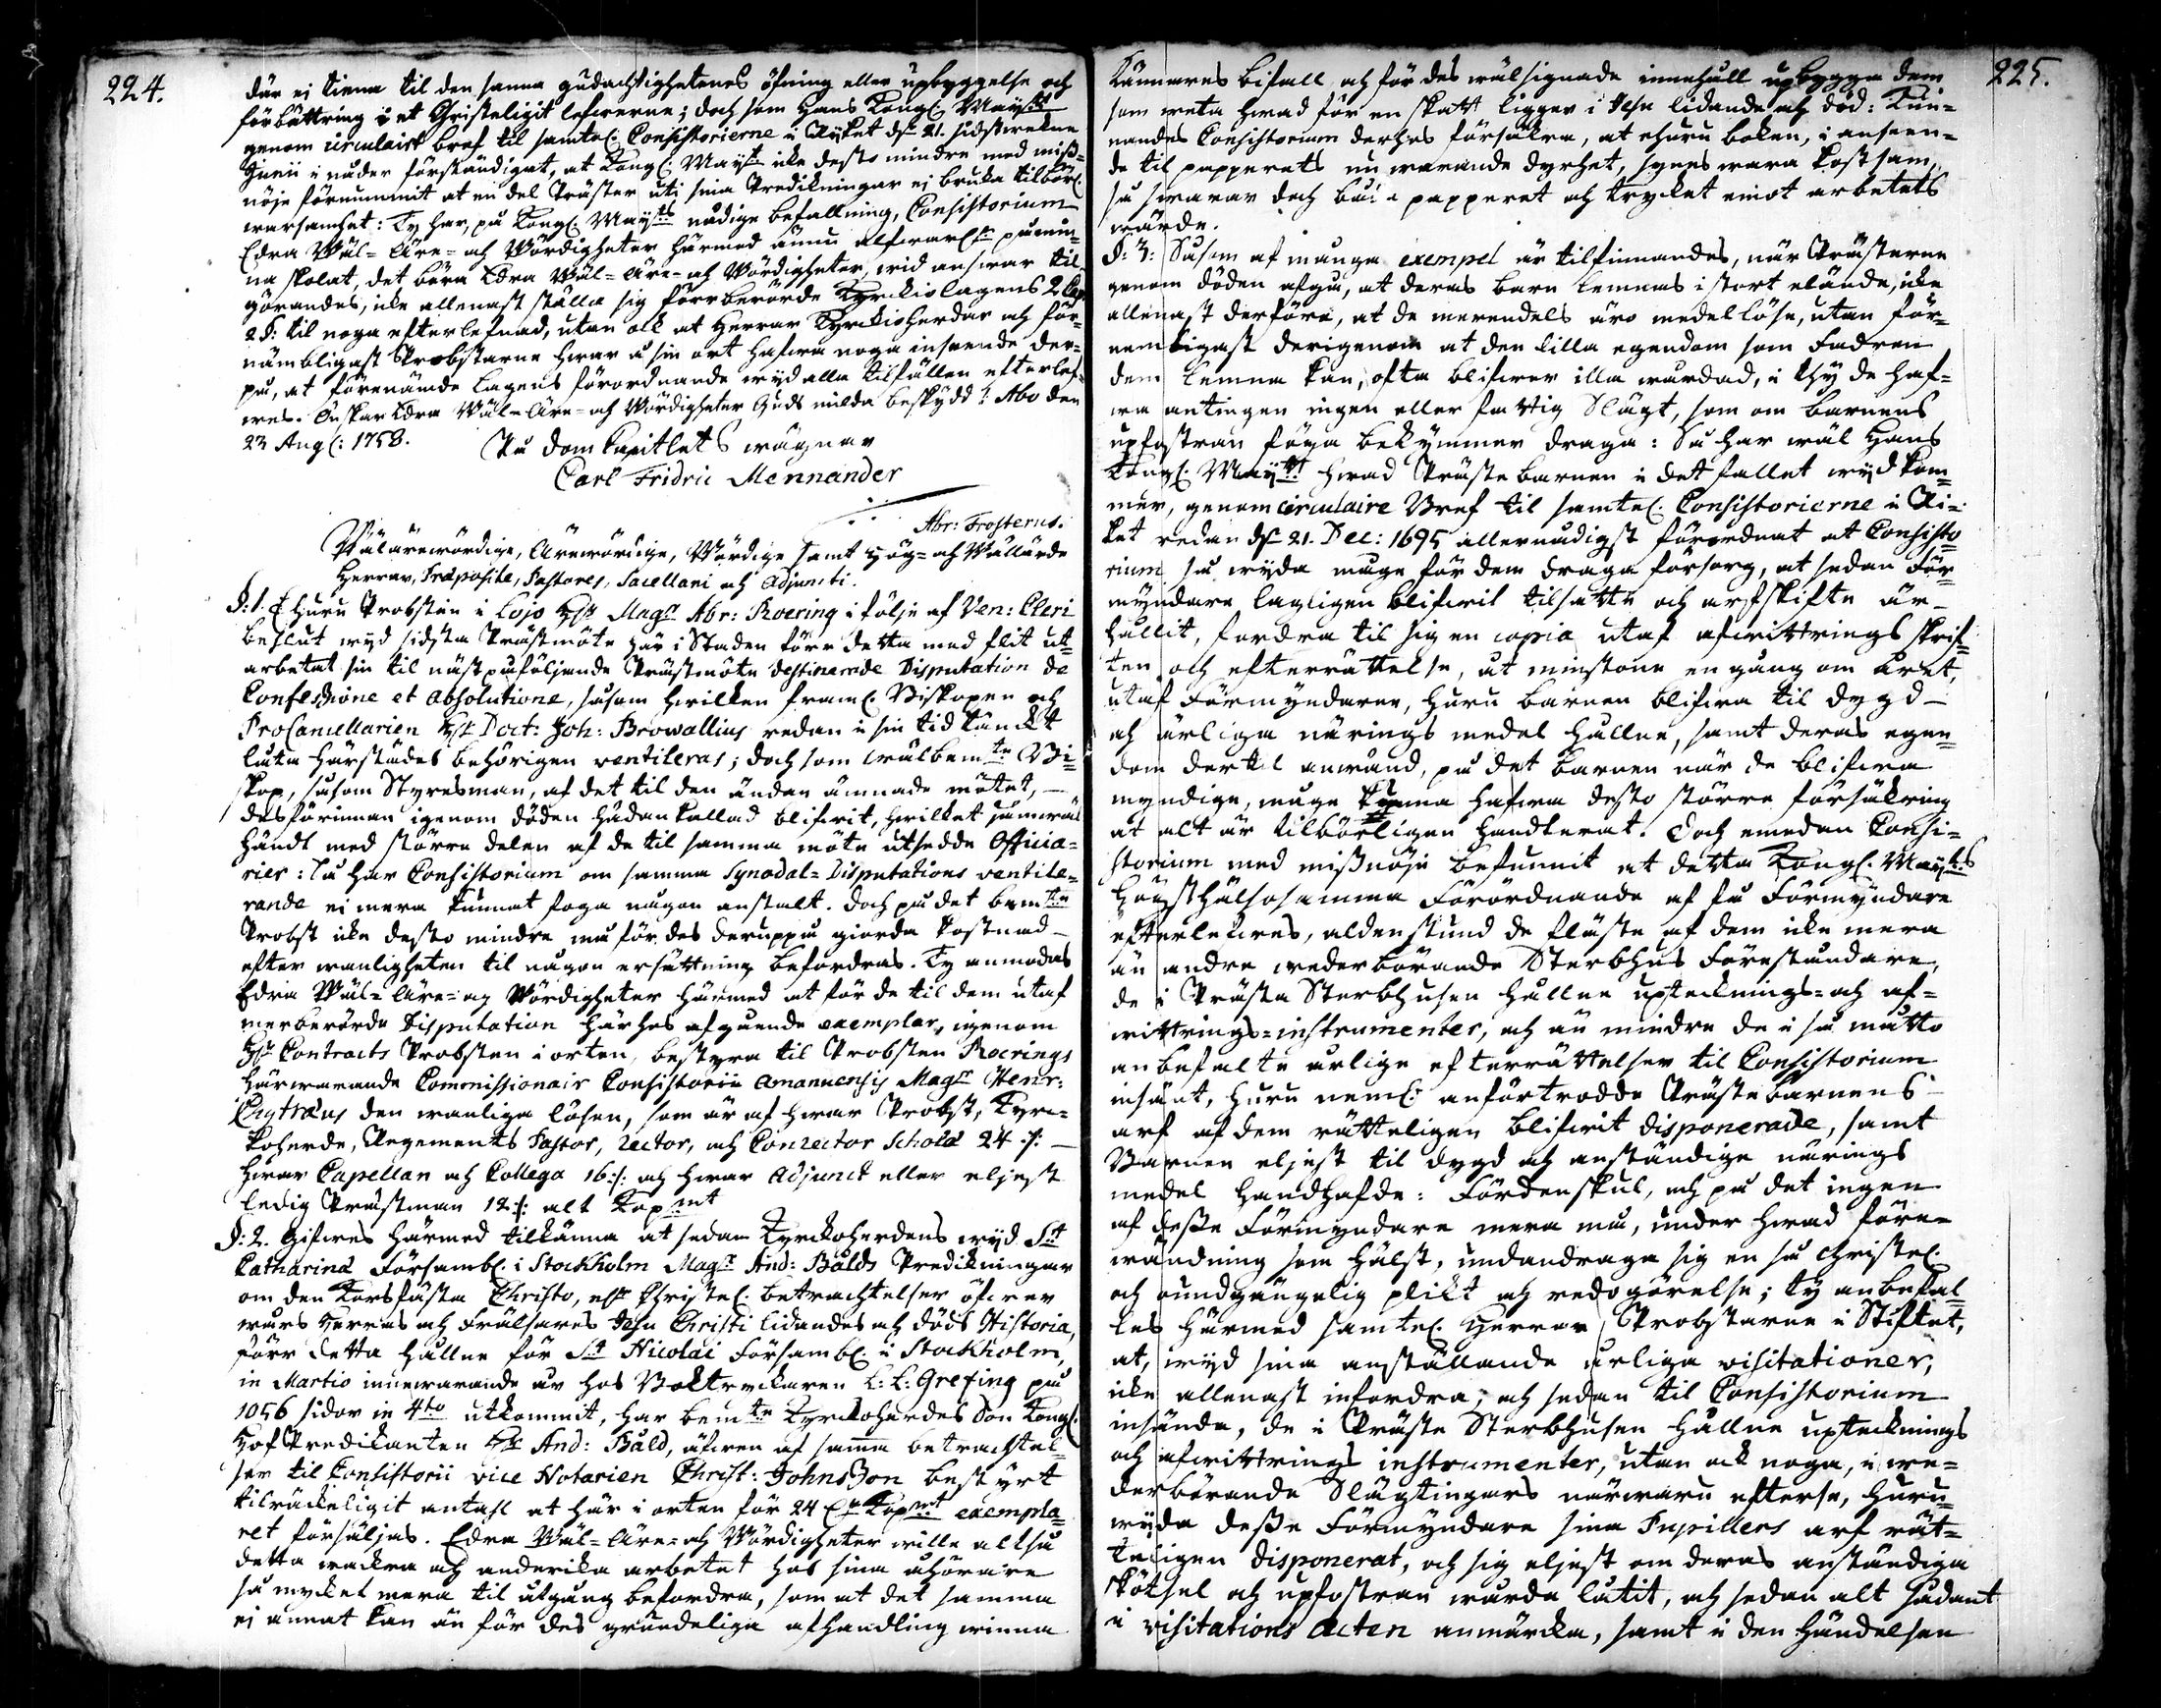 224.
där ei tiena til den sanna gudachtighetenes öfning eller upbyggelse och
förbättring i et Christeligit lefwerne; doch som Hans Kongl: Mayst:t
genom circulairt bref til samtel: Consistorierne i Ryket d: 21. sidstwekne
Junii i nåder förständigat, at Kongl: Mayst:t icke desto mindre med miß-
nöje förnummit at en del Präster uti sina Predikningar ej bruka tilbörl:
warsamhet: Ty har, på Kongl: Mayst:ts nådige befallning, Consistorium
Edra Wäl- Äre- och Wördigheter härmed ännu alfwarl:n påmin-
na skolat, det böra Edra Wäl- Äre- och Wördigheter, wid answar til-
görandes, icke allenast ställa sig förrberörde Kyrckiolagens 2 Cap.
2 §: til noga efterlefnad, utan ock at Herrar Kyrckioherdar och för-
nämbligast Probstarne hwar å sin ort hafwa noga inseende der-
på, at förenämde Lagens förordnande wyd alla tilfällen efterlef-
wes. Önskar Edra Wäl- Äre- och Wördigheter Guds milda beskydd! Abo den
23 Aug: 1758. På Domkapitlets wägnar
Carl Fridric Mennander
Abr: Frosterus.
Wälärewördige, Ärewördige, Wördige samt Hög- och Wällärde
Herrar, Præposite, Pastores, Sacellani och Adjuncti.
§: 1. Ehuru Probsten i Lojo H:r Mag:r Abr: Roering i följe af Ven: Cleri
beslut wyd sidsta Prästmöte här i Staden förr detta med flit ut-
arbetat sin til näst påföljande Prästmöte destinerade Disputation de
Confessione et absolutione, såsom hwilken framl: Biskopen och
ProCancellarien H:r Doct: Joh: Browallius redan i sin tid tänckt
låta härstädes behörigen ventileras; doch som wälbem:te Bi-
skop, såsom Styresman, af det til den ändan ämnade mötet,
desförinnan igenom döden hädankallad blifwit, hwilket jämwäl
händt med större delen af de til samma möte utsedde Officia-
rier: Så har Consistorium om samma Synodal-Disputations ventile-
rande ei mera kunnat foga någon anstalt. Doch på det bem:te
Probst icke desto mindre må för des deruppå giorda kostnad
efter wanligheten til någon ersättning befordras. Ty anmodas
Edra Wäl- Äre- och Wördigheter härmed at för de til dem utaf
merberörde Disputation härhos afgående exemplar, igenom
H:r Contracts Probsten i orten, bestyra til Probsten Roerings
härwarande Commissionair Consistorii Amanuensis Mag:r Henr:
Chytræus den wanliga lösen, som är af hwar Probst, Kyrc-
koherde, Regements Pastor, Rector, och Conrector Scholæ 24 :/:
hwar Capellan och Collega 16 :/: och hwar Adjunct eller eljest
ledig Prästman 12 :/: alt Kopm:t
§: 2. Gifwes härmed tilkänna at sedan Kyrckoherdens wyd S:t
Catharinæ Församl: i Stockholm Mag:r And: Bälds Predikningar
om den Korsfästa Christo, el:r Christel: betrachtelser öfwer
wårs Herras och Frälsares Jesu Christi lidandes och döds Historia,
förr detta hållne för S:t Nicolai Församl: i Stockholm,
in Martio innewarande år hos Boktryckaren L: L: Grefing på
1056 sidor in 4:to utkommit, har bem:te Kyrckoherdes Son Kongl:
Hof Predikanten H:r And: Bäld, äfwen af samma betrachtel-
ser til Consistorii vice Notarien Christ: Johnszon bestyrt
tilräckeligit antahl at här i orten för 24 Kopm:t exempla-
ret försäljas. Edra Wäl- Äre- och Wördigheter wille altså
detta wackra och anderika arbetet hos sina åhörare
så mycket mera til utgång befordra, som at det samma
ej annat kan än för des grundeliga afhandling winna
225.
Kännares bifall, och för des wälsignade innehåll upbygga dem
som weta hwad för en skatt ligger i Jesu lidande och död: Kun-
nandes Consistorium derhos försäkra, at ehuru boken, i anseen-
de til papperets nu warande dyrhet, synes wara kostsam,
så swarar doch både papperet och trycket emot arbetets
wärde.
§: 3: Såsom af många exempel är tilfinnandes, när Prästerne
genom döden afgå, at deras barn lemnas i stort elände, icke
allenast derföre, at de merendels äro medellöse, utan för-
nembligast derigenom at den lilla egendom som Fadren
dem lemna kan, ofta blifwer illa wårdad, i thy de haf-
wa antingen ingen eller fattig Slägt, som om barnens
upfostran föga bekymmer draga: Så har wäl Hans
Kongl: Mayst:t hwad Prästebarnen i det fallet wydkom-
mer, genom circulaire Bref til samtel: Consistorierne i Ri-
ket redan d: 21. Dec: 1695 allernådigst förordnat at Consisto-
rium så wyda måge för dem draga försorg, at sedan För-
myndare lagligen blifwit tilsatte och arfskifte är
hållit, fordra til sig en copia utaf afwittrings skrif-
ten och efterrättelse, åt minstone en gång om året,
utaf Förmyndaren, huru barnen blifwa til dygd
och ärliga närings medel hållne, samt deras egen-
dom dertil anwänd, på det barnen när de blifwa
myndige, måge kunna hafwa desto större försäkring
at alt är tilbörligen handterat. Doch emedan Consi-
storium med mißnöje befunnit at detta Kongl: Mayst:ts
högsthälsosamma Förordnande af få Förmyndare
efterlefwes, aldenstund de fläste af dem icke mera
än andre wederbörande Sterbhus Föreståndare,
de i Prästa Sterbhusen hållne uptecknings- och af-
wittrings-instrumenter, och än mindre de i så måtto
anbefalte årlige efterrättelser til Consistorium
insändt, huru neml: anförtrodde Prästebarnens
arf af dem rätteligen blifwit disponerade, samt
Barnen eljest til dygd och anständige närings
medel handhafde: Fördenskul, och på det ingen
af deße Förmyndare mera må, under hwad före-
wändning som hälst, undandraga sig en så Christel:
och oundgängelig plikt och redogörelse; Ty anbefal-
les härmed samtel: Herrar Probstarne i Stiftet,
at, wyd sina anställande årliga visitationer,
icke allenast infordra, och sedan til Consistorium
insända, de i Präste Sterbhusen hållne uptecknings
och afwittrings instrumenter, utan ock noga, i we-
derbörande Slägtingars närwaru efterse, huru-
wyda deße Förmyndare sina Pupillers arf rät-
teligen disponerat, och sig eljest om deras anständiga
skötsel och upfostran wårda låtit, och sedan alt sådant
i visitations Acten anmärcka, samt i den händelsen